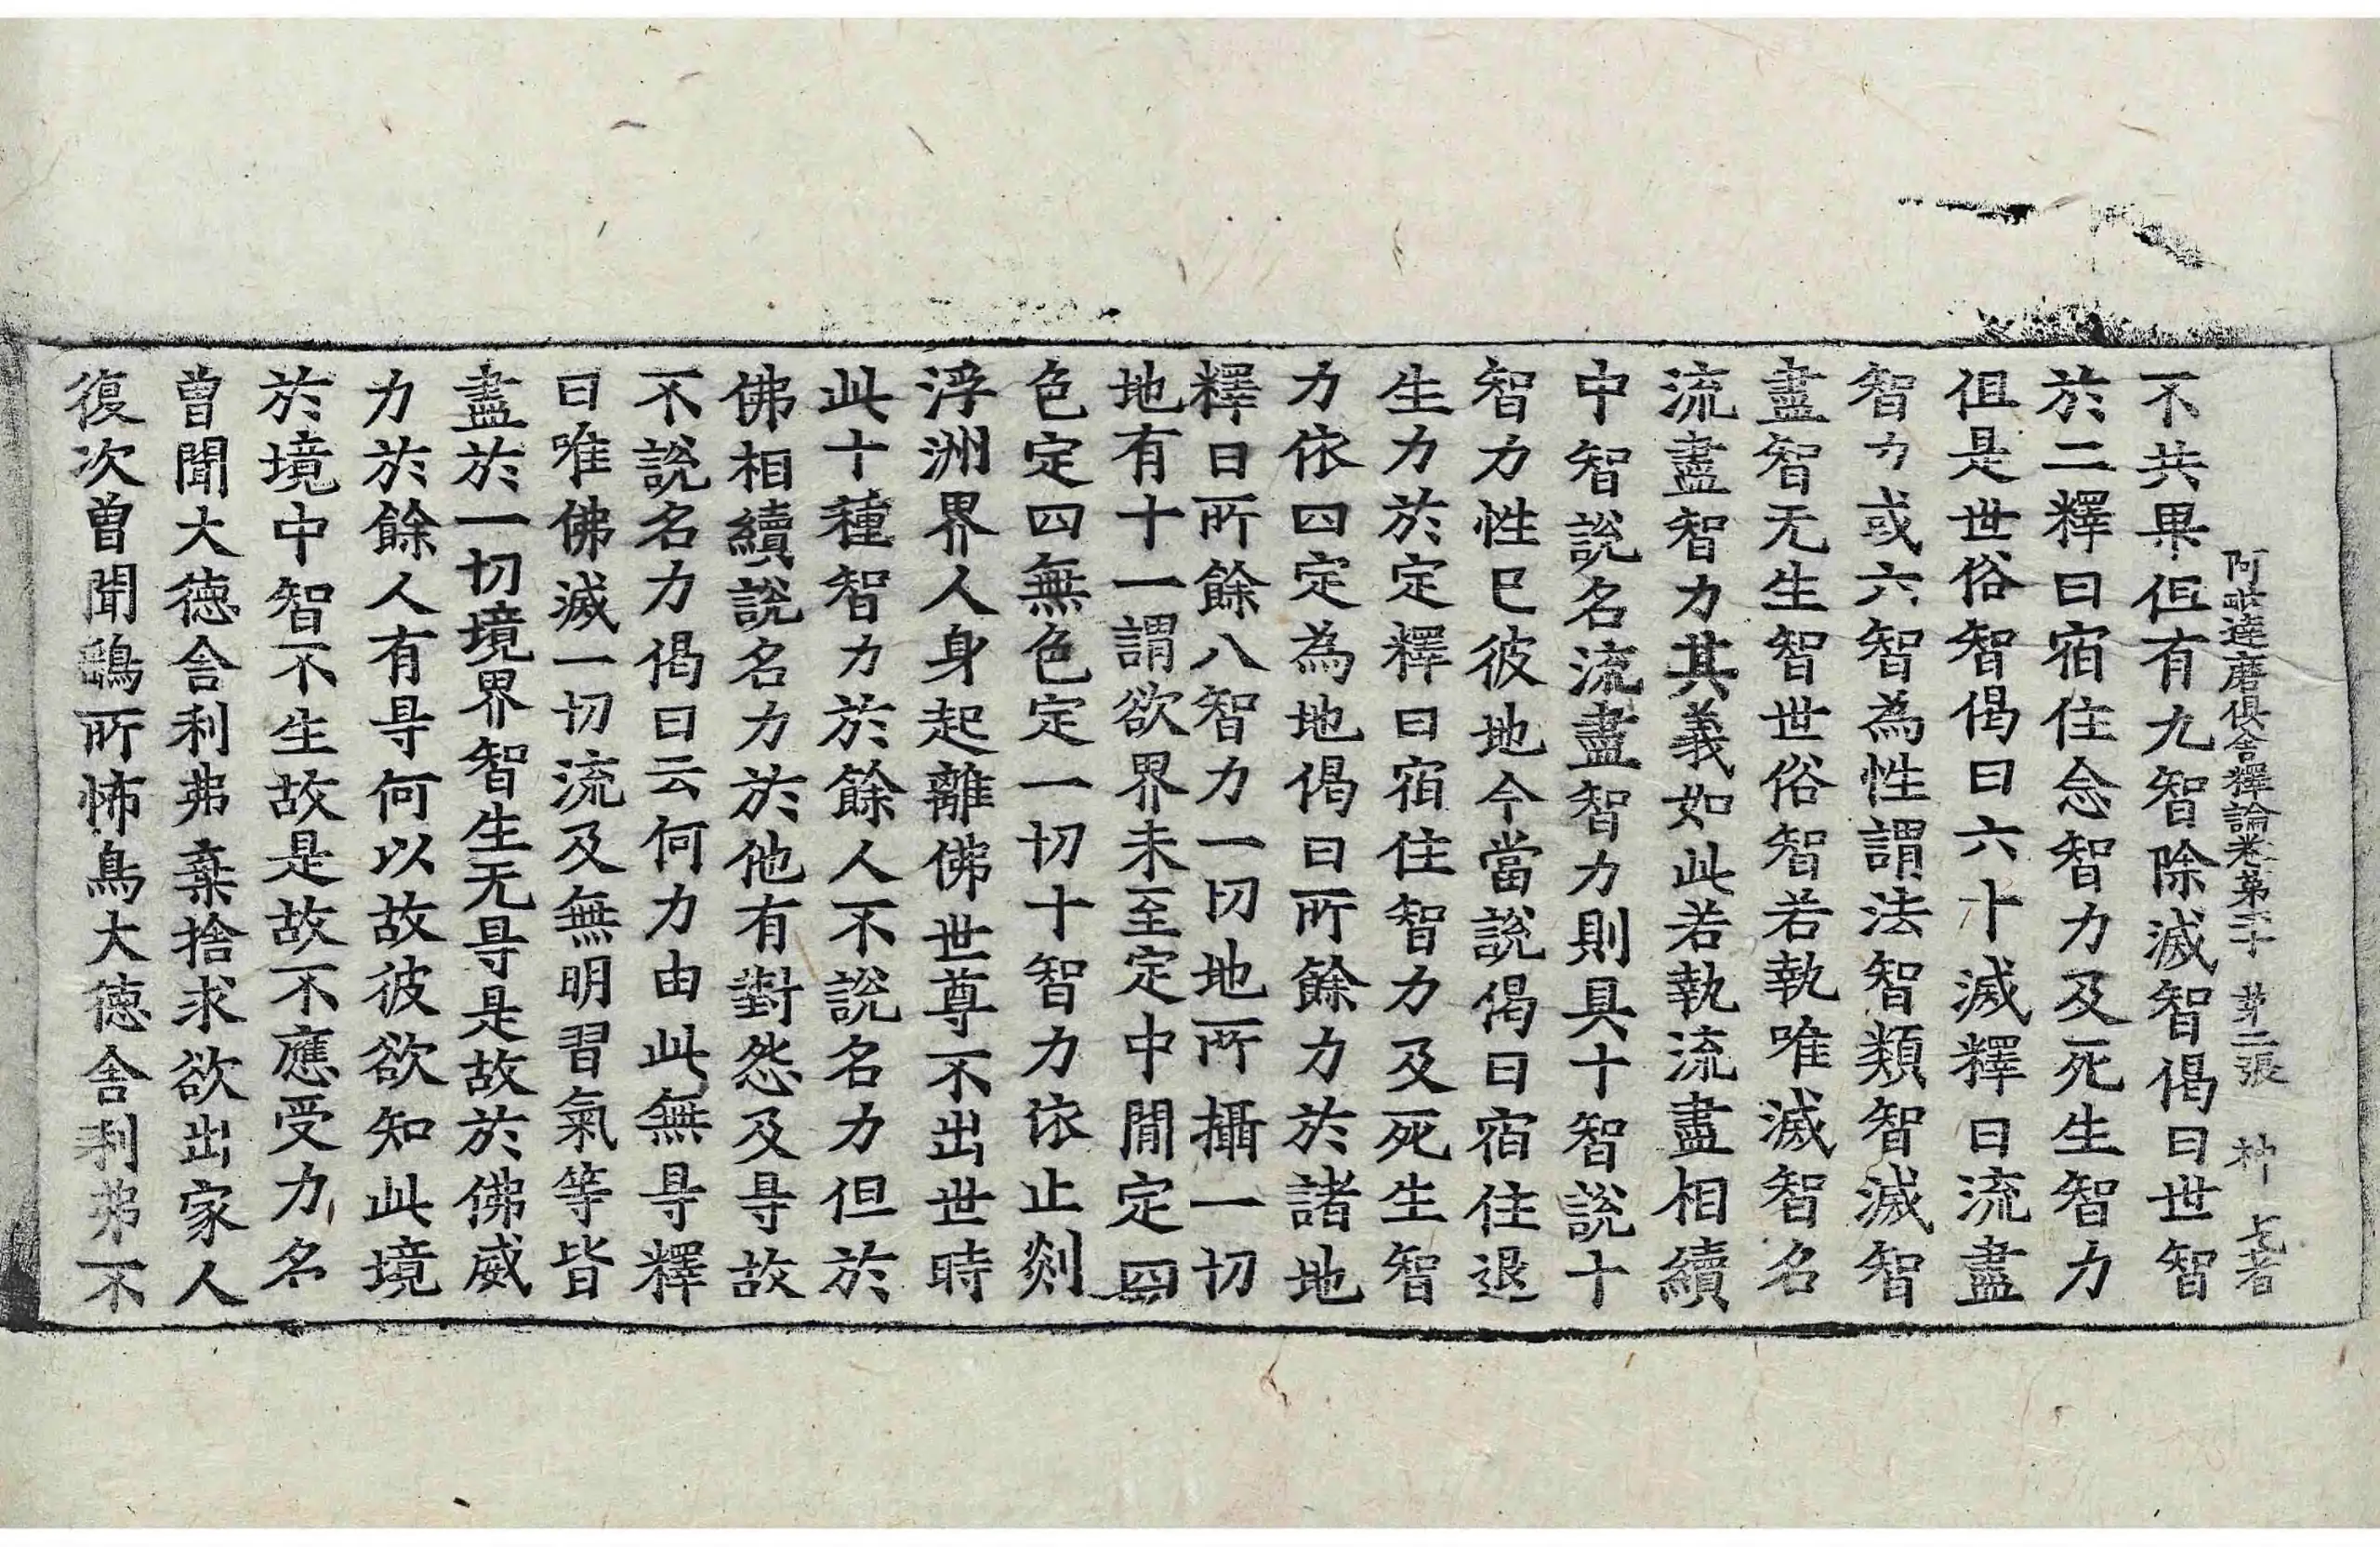 阿毗達磨俱舍釋論卷第二十 第二張 神
不共果但有九智除滅智偈曰世智
於二釋曰宿住念智力及死生智力
但是世俗智偈曰六十滅釋曰流盡
智力或六智為性謂法智類智滅智
盡智无生智世俗智若執唯滅智名
流盡智力其義如此若執流盡相續
中智說名流盡智力則具十智說十
智力性已彼地今當說偈曰宿住退
生力於定釋曰宿住智力及死生智
力依四定為地偈曰所餘力於諸地
釋曰所餘八智力一切地所攝一切
地有十一謂欲界未至定中閒定四
色定四無色定一切十智力依止剡
浮洲界人身起離佛世尊不出世時
此十種智力於餘人不說名力但於
佛相續說名力於他有對怨及㝵故
不說名力偈曰云何力由此無㝵釋
曰唯佛滅一切流及無明習氣等皆
盡於一切境界智生无㝵是故於佛威
力於餘人有㝵何以故彼欲知此境
於境中智不生故是故不應受力名
曾聞大德舍利弗棄捨求欲出家人
復次曾聞鷂所怖鳥大德舍利弗不